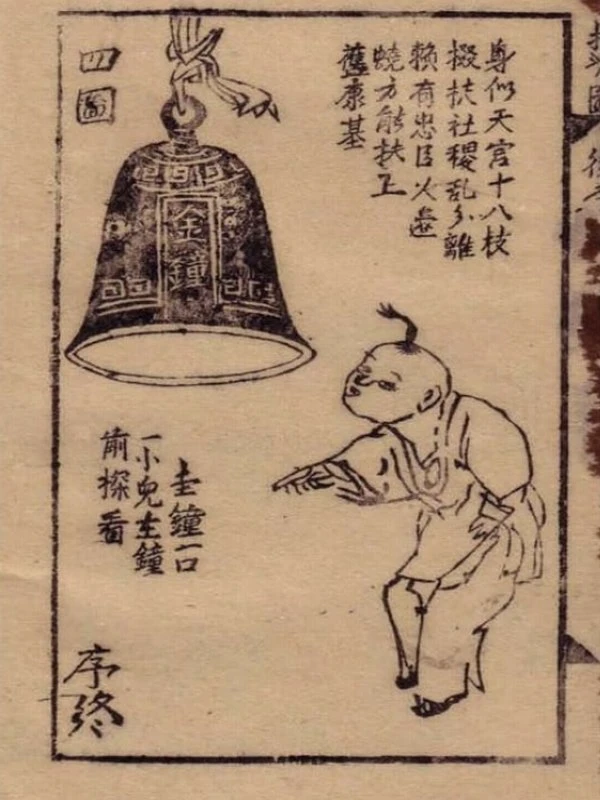 身似天宮十八枝
掇扶社稷乱分離
賴有忠臣火
燒方能扶正
舊康基
四圖
金鐘
圭鐘一口
一小兒在鐘
前探看
序終